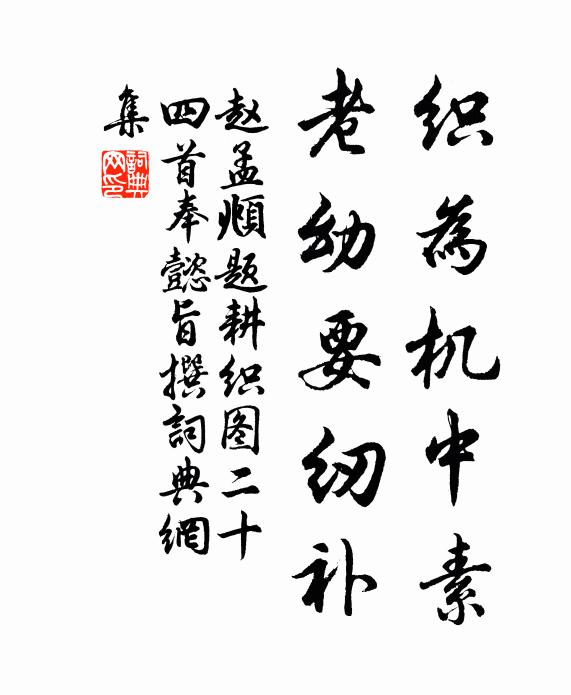 织為机中素
老幼要纫补
赵孟頫题耕织图二十
四首奉懿旨撰詞典網
集
詞典
网印